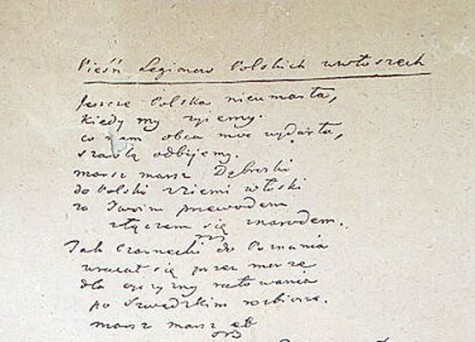 Pieśń Legionow Polskich wewłoszech
Jeszcze Polska nieumarła,
kiedy my żyiemy.
co nam obca moc wydarła,
szablą odbijemy.
marsz marsz Dąbroski
do Polski zziemi włoski
za Twoim przewodem
złączem się znarodem.
Jak Czarnecki do Poznania
wracał się przez morze
dla oyczyzny ratowania
po Szwedzkim rozbiorze.
marsz marsz etc